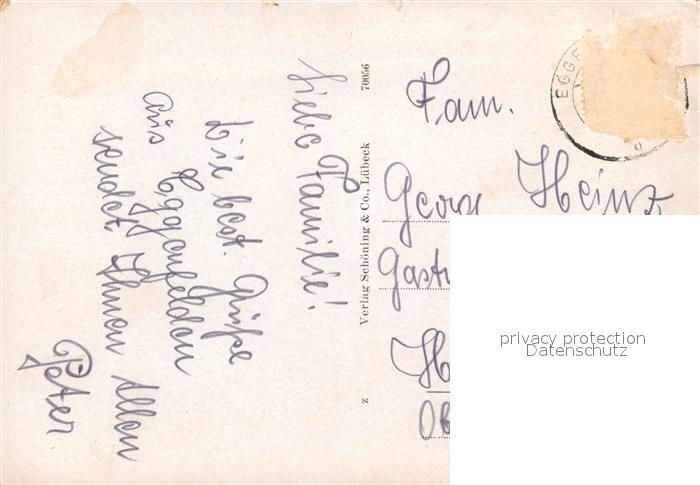 Liebe Familie!
Die best. Grüße
aus Eggenfelden
sendet Ihnen Allen
Peter
Verlag Schöning & Co., Lübeck
70056
z
EGGE
d
Fam.
Georg Heinz
Gast
H
Ob
privacy protection
Datenschutz